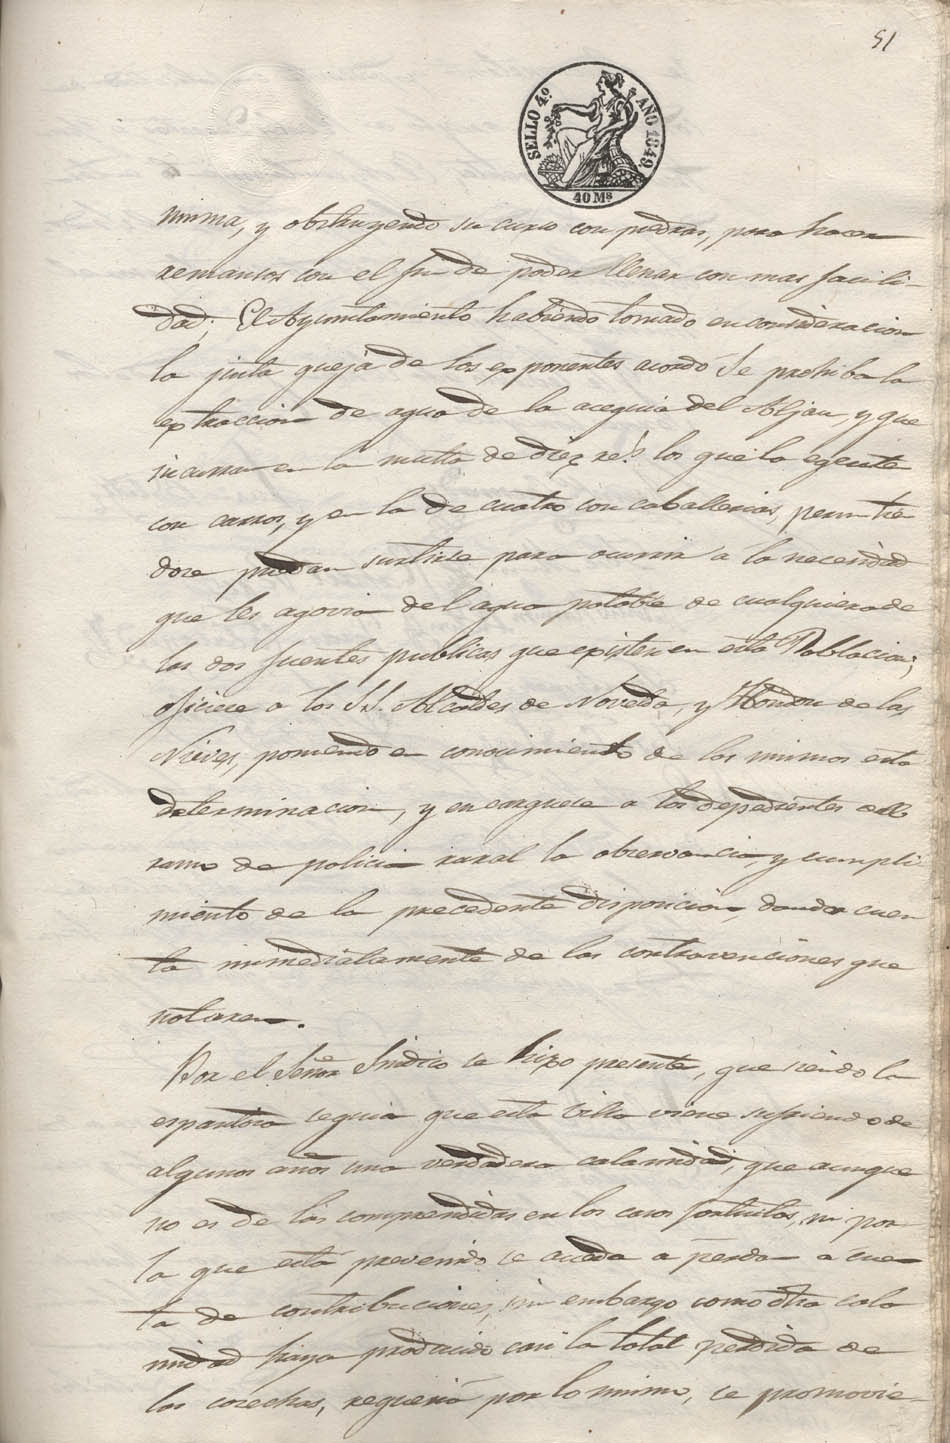 51
SELLO 4º. AÑO 1849.
40 Mˢ
misma, y obstruyendo su curso con piedras, para hacer
remansos con el fin de poder llenar con mas facili-
dad; El Ayuntamiento habiendo tomado en consideracion
la justa queja de los exponentes acordó Se prohiba la
extraccion de agua de la acequia del Aljau, y que
incurran en la multa de diez rs. los que la egecute
con carros, y en la de cuatro con caballerias, permitie
dose puedan surtirse para ocurrir a la necesidad
que les agovia del agua potable de cualquiera de
las dos fuentes publicas que existen en esta Poblacion;
oficiese a los S.S. Alcaldes de Novelda, y Hondon de las
Nieves, poniendo en conocimiento de los mismos esta
determinacion, y encarguese a los depedientes del
ramo de policia rural la observancia, y cumpli
miento de la precedente disposicion, dando cuen
ta inmediatamente de las contravenciones que
notaren.
Por el Señor Sindico se hizo presente, que siendo la
espantosa sequia que esta villa viene sufriendo de
algunos años una verdadera calamidad, que aunque
no es de las comprendidas en los casos fortuitos, ni por
la que está prevenido se acceda a perdon a cuen
ta de contribuciones, sin embargo como otra cala
midad haya producido casi la total perdida de
las cosechas, requeria por lo mismo, se promovie-